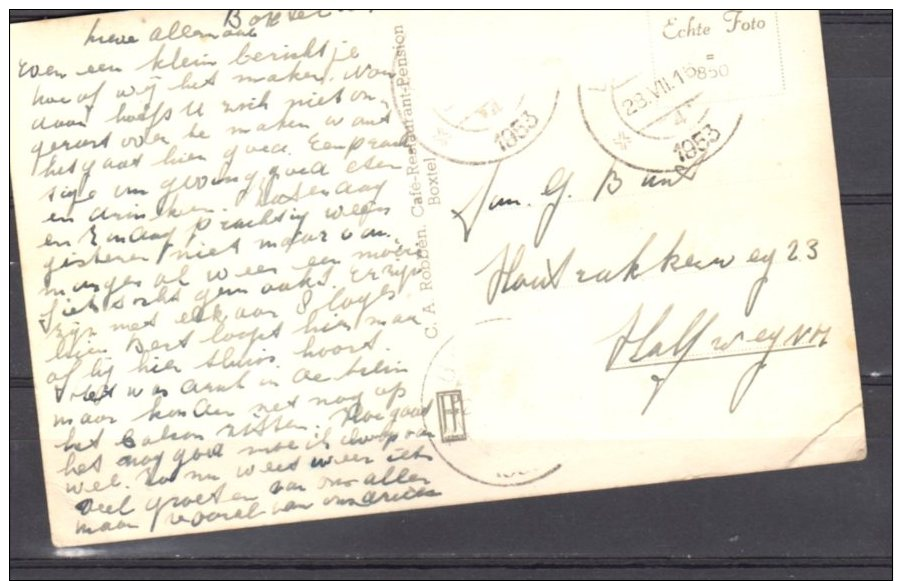 Boxtel
Lieve allemaal
Even een klein berichtje
hoe of wij het maken. Nou
daar hoeft U zich niet on-
gerust over te maken want
het gaat hier goed. Een prach
en drinken. Zaterdag
en Zondag prachtig weer
gisteren niet maar van-
morgen al weer een mooie
fietstocht gemaakt.
zijn met elkaar 8 loges
hier. Bert loopt hier maar
of hij hier thuis hoort.
in de trein
maar konden net nog op
het balcon zitten. Hoe gaat
het nog goed
wel. Zo nu weet weer iets
veel groeten van ons allen
maar vooral van ons
C. A. Robben. Café-Restaurant-Pension
Boxtel
Echte Foto
28.VII.1
1953
4
1953
Fam. G. Bunt
Houtrakkerweg 23
Halfweg NH